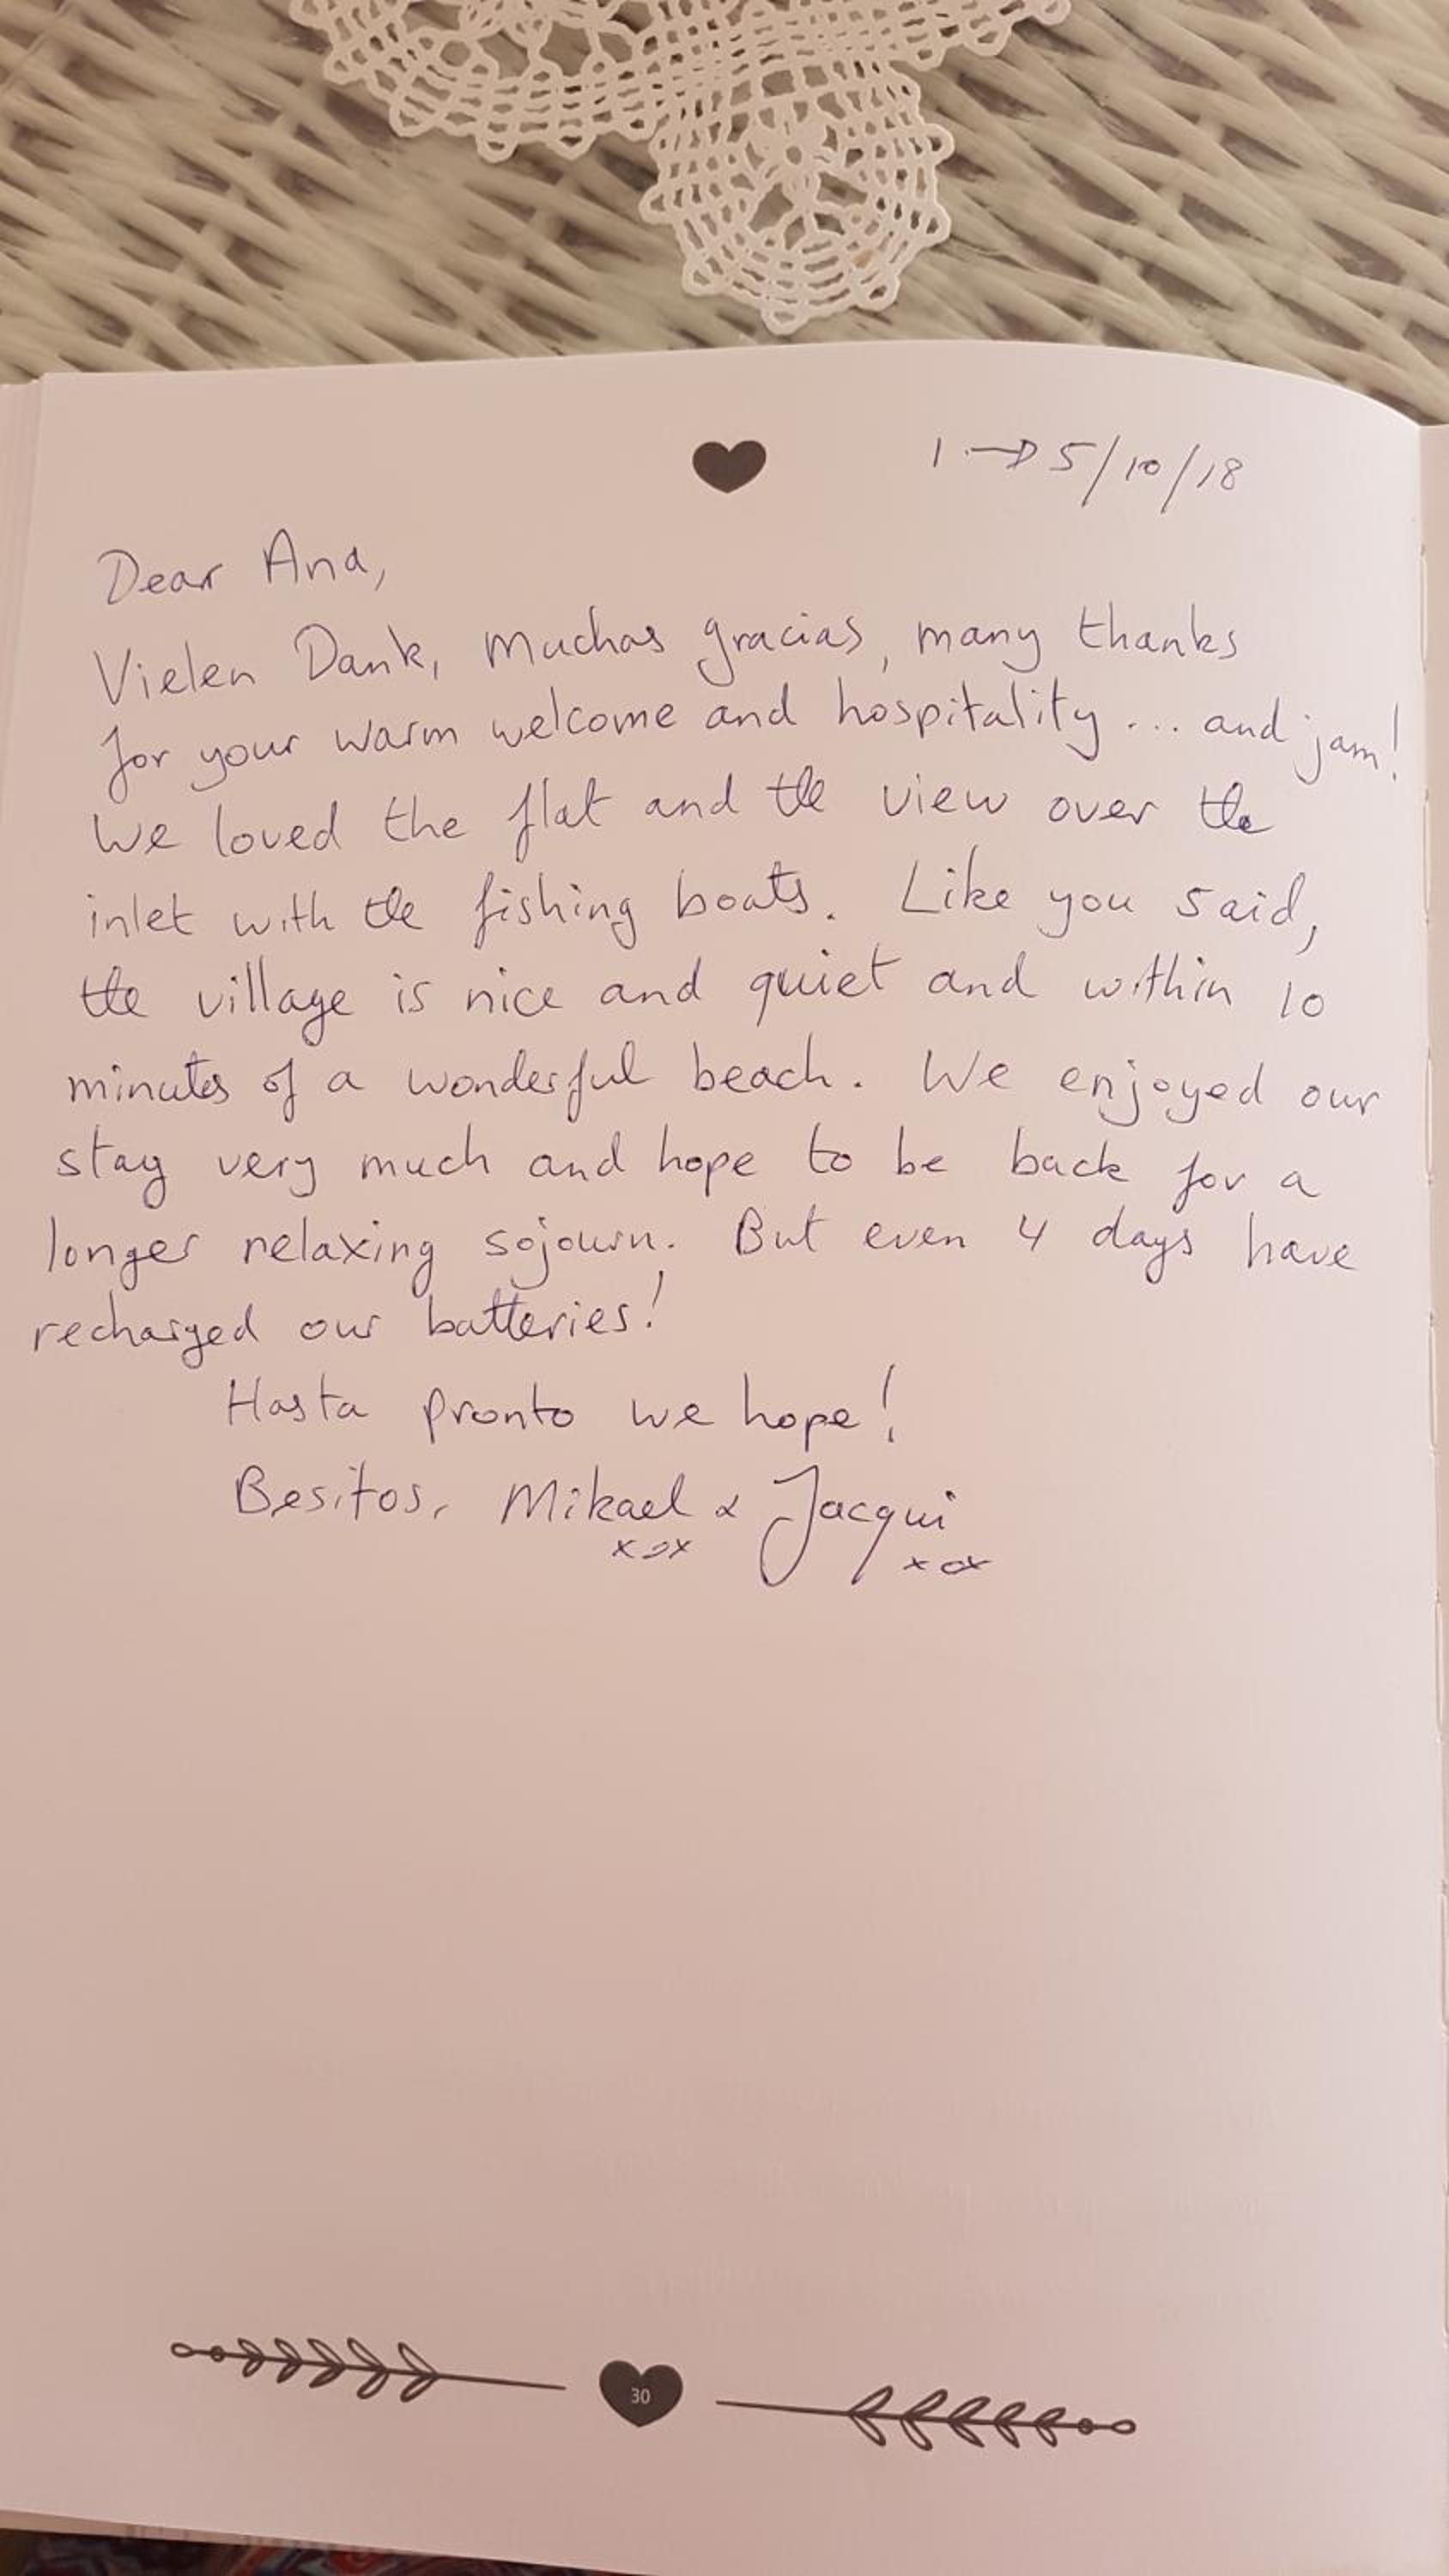 1 → 5/10/18
Dear Ana,
Vielen Dank, Muchas gracias, many thanks
for your warm welcome and hospitality... and jam!
We loved the flat and the view over the
inlet with the fishing boats. Like you said,
the village is nice and quiet and within 10
minutes of a wonderful beach. We enjoyed our
stay very much and hope to be back for a
longer relaxing sojourn. But even 4 days have
recharged our batteries!
Hasta pronto we hope!
Besitos, Mikael & Jacqui
xox xox
30